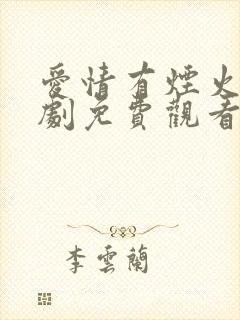 愛情有煙火
劇免費觀看
李雲蘭